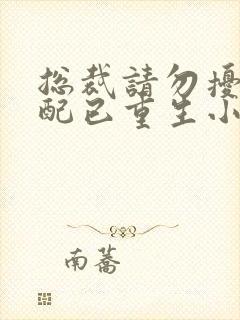 総裁請勿擾
配已重生小
南蕎